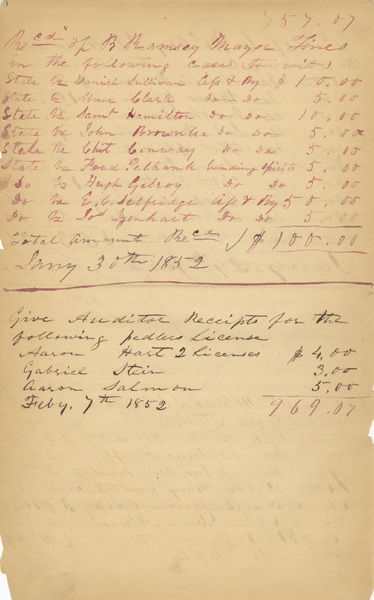 757.07
Recd of B Ramsey Mayor Fines
in the following cases (to wit)
State vs Daniel Sullivan Af & By $ 10.00
State vs Clark Do Do 5.00
State vs Saml Hemilton Do Do 10.00
State vs John Brownlee Do Do 5.00
State vs Chit Conway Do Do 5.00
State vs Fred Vending Spirits 5.00
Do vs Hugh Gilroy Do Do 5.00
Do vs E. C. Selfridge Af & By 50.00
Do vs Jos Do Do 5.00
Total Amount Recd $100.00
Jany 30th 1852
Give Auditor Receipts for the
following pedlers License
Aaron Hart 2 Licenses $ 4.00
Gabriel Stein 3.00
Aaron Salmon 5.00
Feby, 7th 1852 969.07